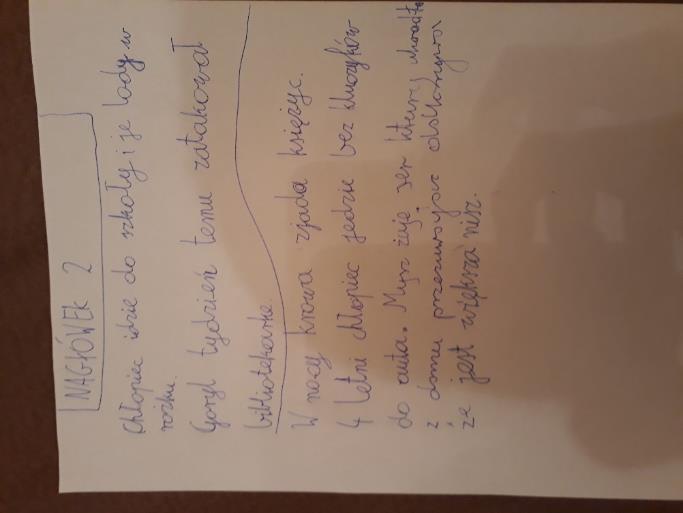 NAGŁÓWEK 2
Chłopiec idzie do szkoły i je lody w
rożku.
Goryl tydzień temu zatakował
bibliotekarke.
W nocy krowa zjada księżyc.
4 letni chłopiec jedzie bez kluczyków
do auta. Mysz żuje ser kturej ukradła
z domu przerwyając
że jest większa nisz.